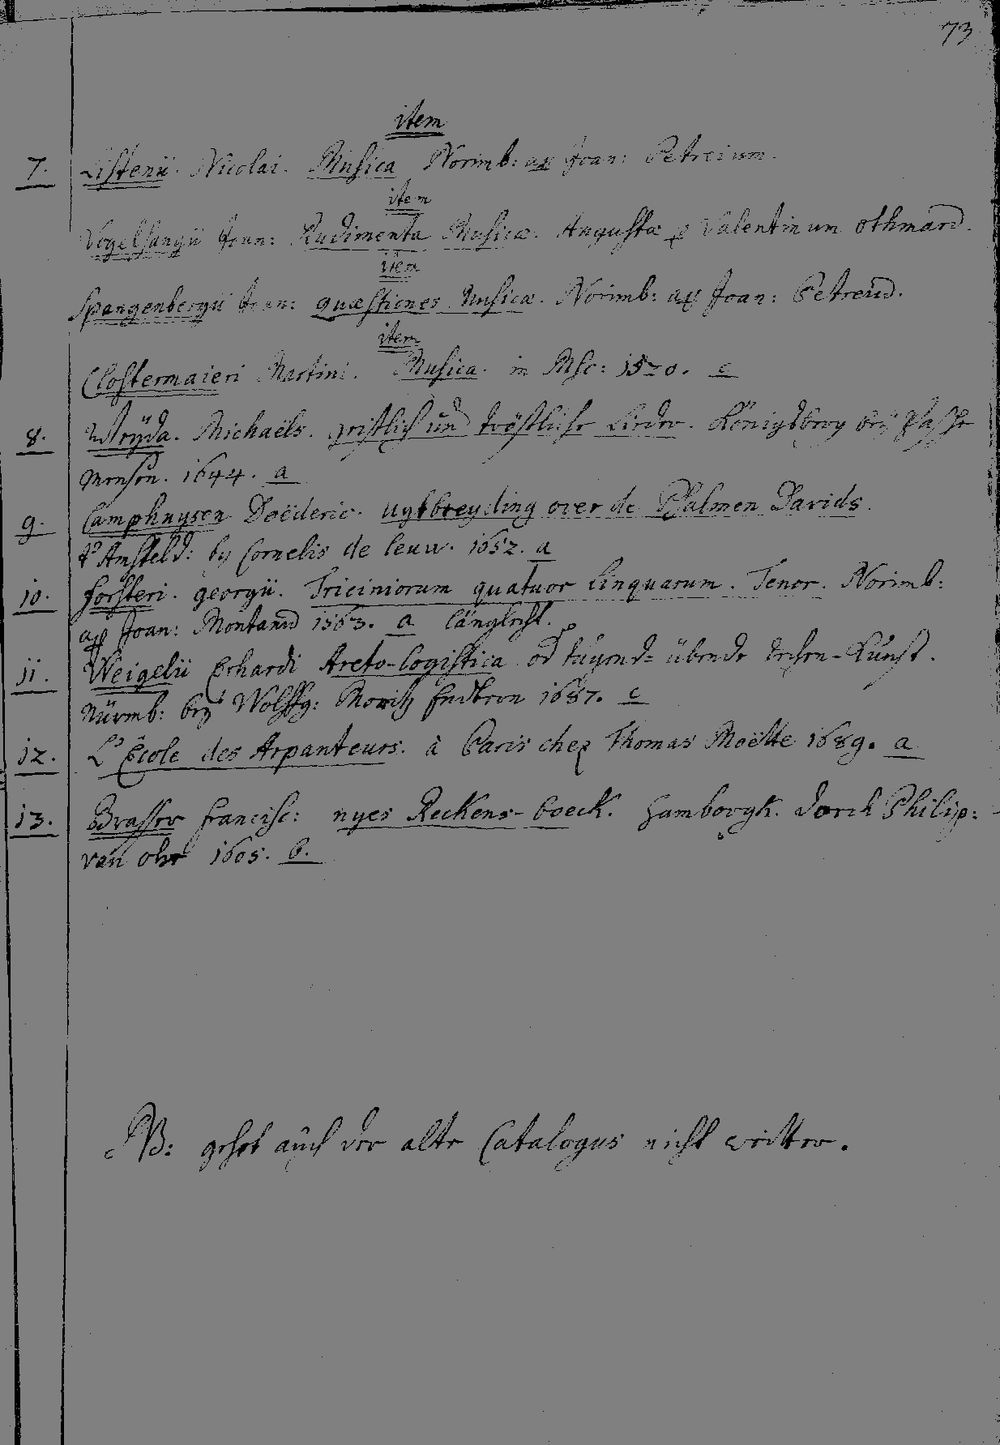 73
item
7. Listenii. Nicolai. Musica Norimb: ap Joan: Petreium.
item
Vogelsangii Joan: Rudimenta Musicæ. Augustæ p Valentinum Othmard.
item
Spangenbergii Joan: quæstiones Musicæ. Norimb: ap Joan: Petreud.
item
Clostermaieri Martini. Musica. in Msc: 1570. c
8. Weyda. Michaëls. geistlich und tröstliche Lieder. Königsberg bey Pasche
Mensen. 1644. a
9. Camphuysen Doëderic. uytbreyding over de Psalmen Davids.
t'Amsteld: by Cornelis de leuw. 1652. a
10. Forsteri. georgii. Triciniorum quatuor Linguarum. Tenor. Norimb:
ap Joan: Montanud 1563. a länglicht.
11. Weigelii Erhardi Areto-logistica od tugend- übende Rechen-Kunst.
Nürmb: bey Wolffg: Moritz Endtern 1687. c
12. L'École des Arpanteurs. à Paris chez Thomas Moëtte 1689. a
13. Brasser Francisc: nyes Reckens-boeck. Hamborgk. dorch Philip:
van Ohr 1605. b.
NB: gehet auch der alte Catalogus nicht weiter.